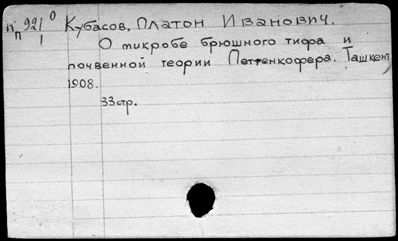 Кубасов, Платон Иванович.
О микробе брюшного тифа и
почвенной теории Петтенкофера. Ташкент
1908.
33стр.